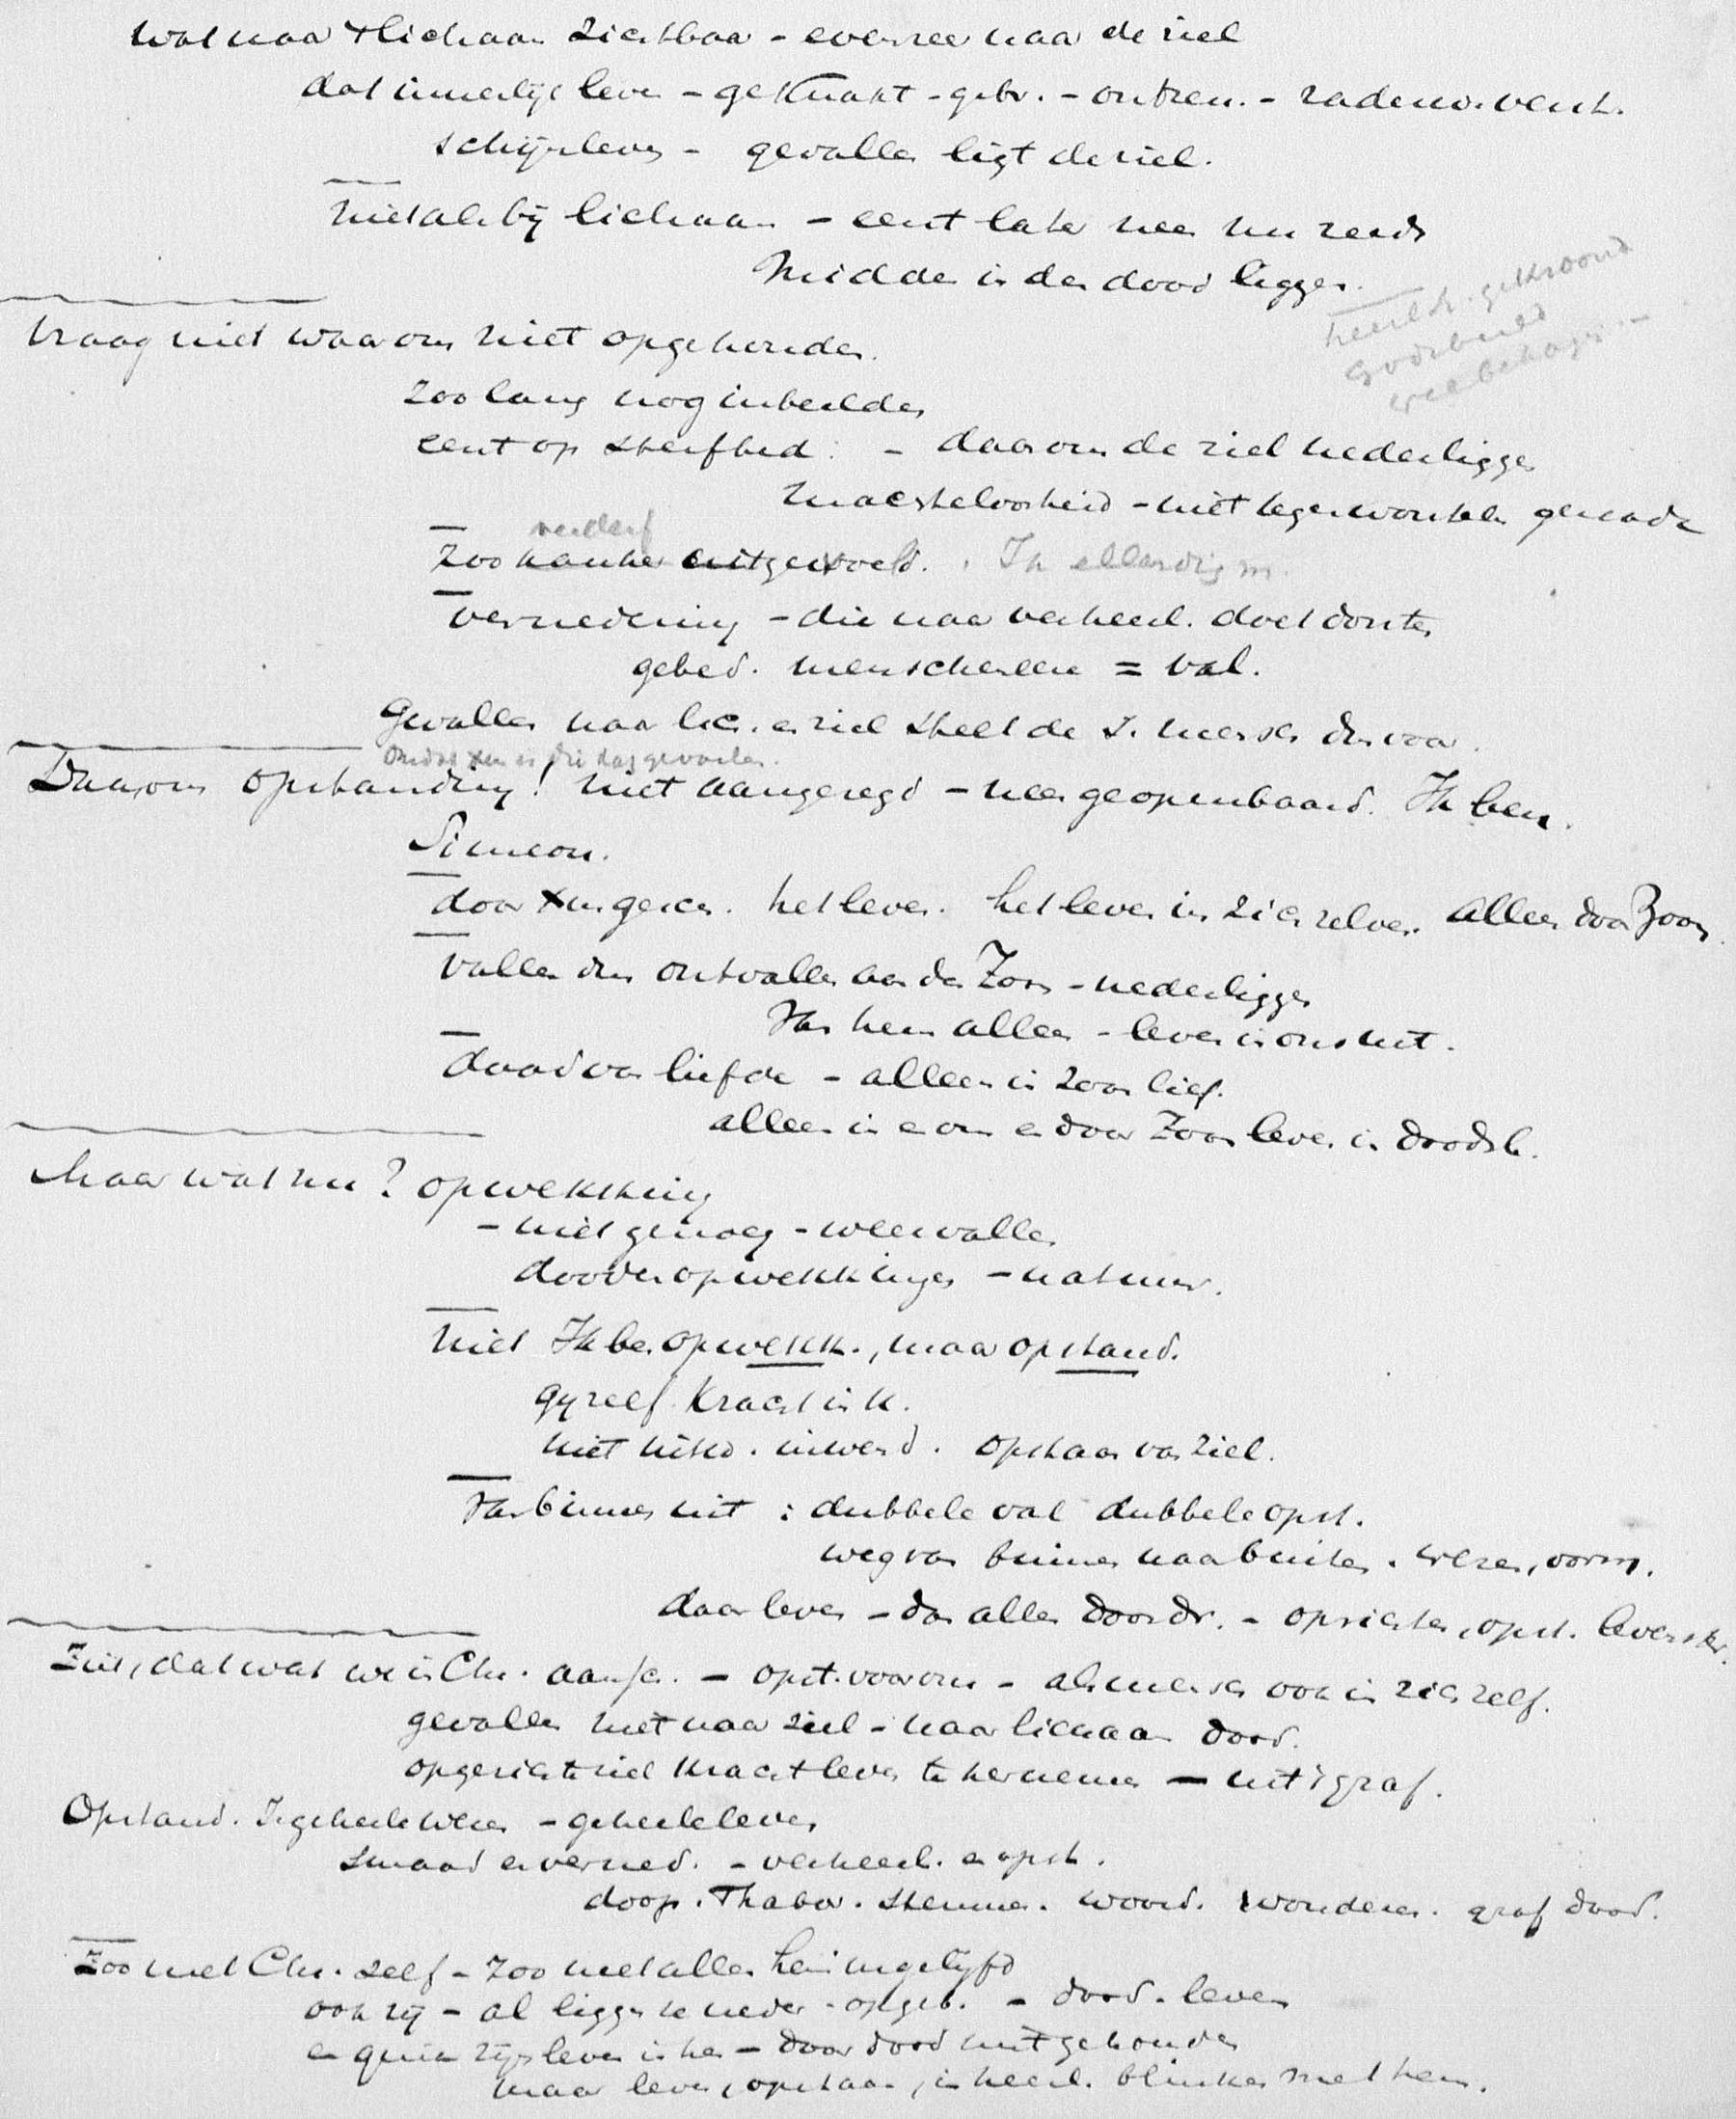 wat naar 't lichaam zichtbaar - evenzeer naar de ziel
dat innerlijk leven - geknakt - gebr. - ontzen. -
schijnleven - gevallen ligt de ziel.
niet als bij lichaam - eerst later neen nu reeds
midden in den dood liggen.
heerl. gekroond
Godsbeeld
welbehagen -
Vraag niet waarom niet opgehouden.
zoolang nog inbeelden
eerst op sterfbed: - daarom de ziel nederliggen
machteloosheid - niet tegenworstelen genade
verderf
Zoo kanker uitgewoeld. Ik ellendig m.
vernedering - die naar verheerl. doet dorsten
gebed. menschenleer = val.
Gevallen naar lic. en ziel stelt de S. mensch ons voor.
Omdat Xus is die dag geworden.
Daarom opstanding! niet aangezegd - neen geopenbaard. Ik ben.
Simeon.
door Xus gesch. het leven. het leven in zich zelven. alleen door Zoon.
vallen ons ontvallen aan den Zoon - nederliggen
Van hem alleen - leven in ons uit.
daad van liefde - alleen in Zoon lief.
alleen in en om en door Zoon leven in doodsl.
Maar wat nu? opwekking
- niet genoeg - weervallen
doodenopwekkingen - natuur.
niet Ik ben opwekk., maar opstand.
gij zelf. Kracht in k.
niet uitw. inwend. opstaan van ziel.
Van binnen uit: dubbele val dubbele opst.
weg van binnen naar buiten. wezen, vorm.
daar leven - dan alles doordr. - oprichten, opst. levenskr.
Ziet, dat wat we in Chr. aansch. - opst. voor ons - als mensch ook in zich zelf.
gevallen niet naar ziel - naar lichaam dood.
opgerichte ziel kracht leven te hernemen - uit 't graf.
Opstand. In geheele wezen - geheele leven
smaad en verned. - verheerl. en opst.
doop. Thabor. stemmen. woord. wonderen. graf dood.
Zoo met Chr. zelf - zoo met allen hem ingelijfd
ook zij - al liggen ze neder - opgeb. - dood - leven
en zijn leven in hen - door dood niet gehouden
maar leven, opstaan, in heerl. blinken met hem.